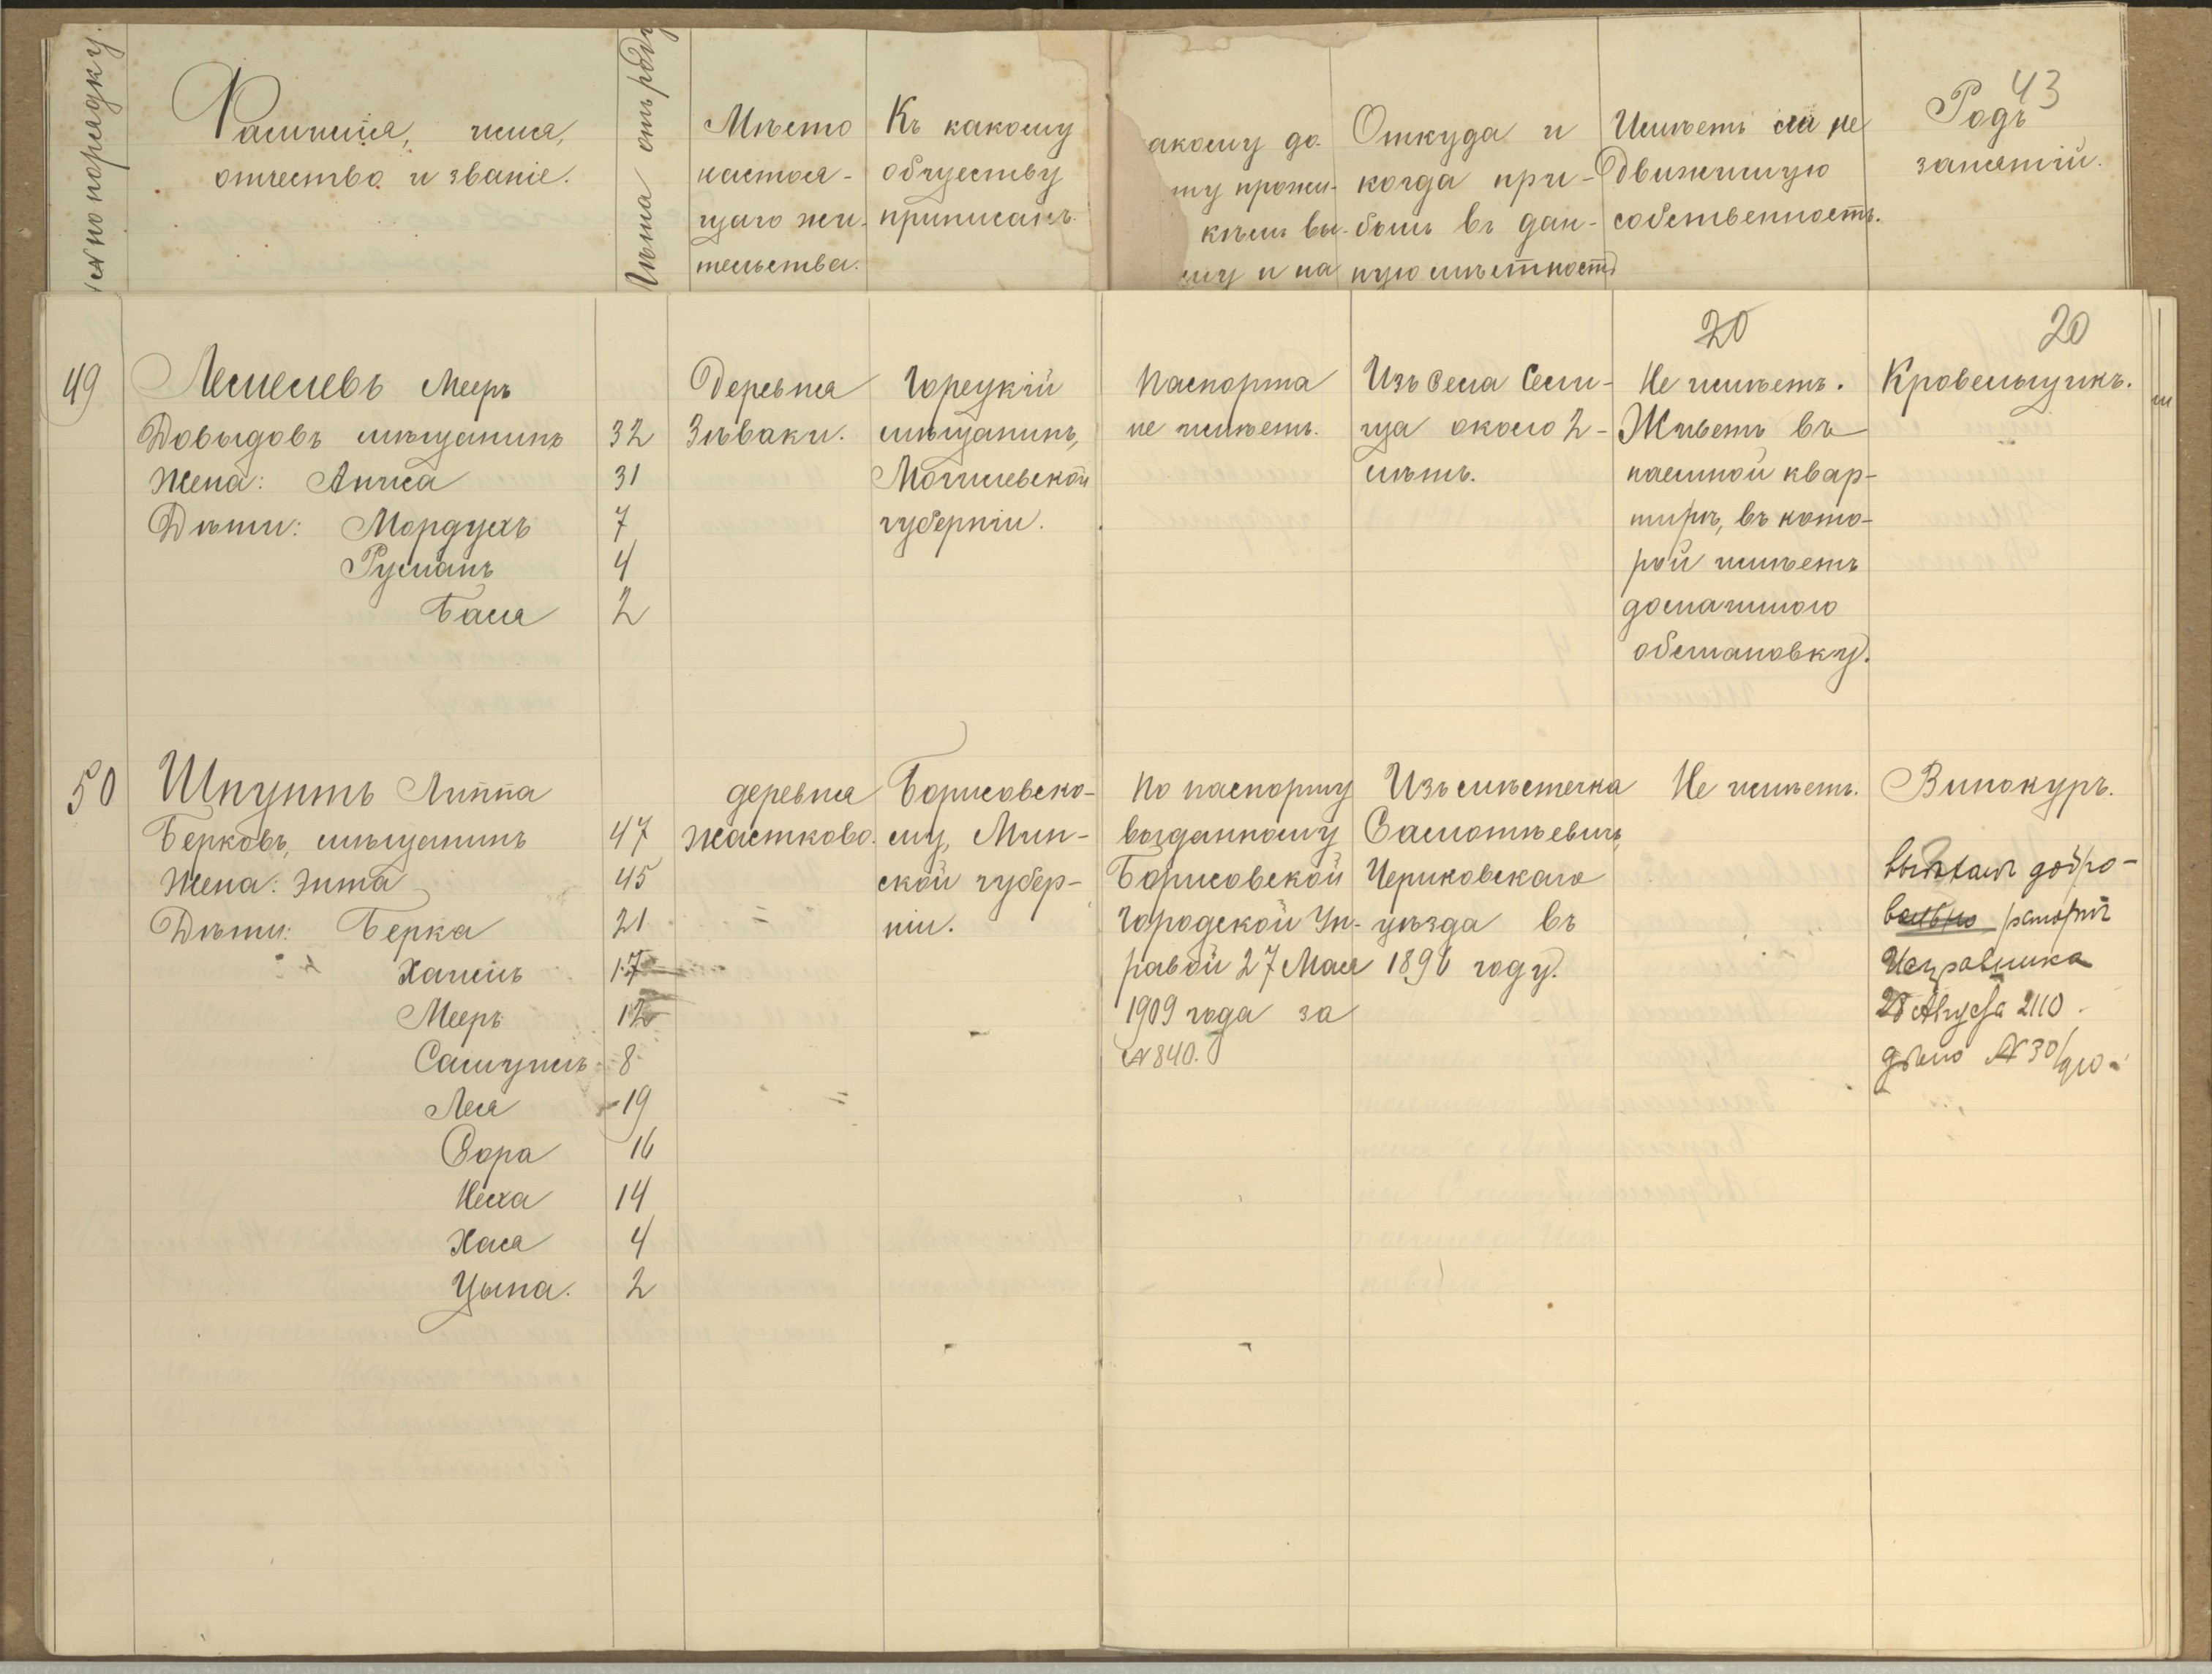 43
№ по порядку.
Фамилія, имя,
отчество и званіе.
Лѣта отъ роду
Мѣсто
настоя-
щаго жи-
тельства.
Къ какому
обществу
приписанъ.
акому до-
ту прожи-
кѣмъ вы-
му и на
Откуда и
когда при-
былъ въ дан-
ную мѣстность
Имѣетъ ли не
движимую
собственность.
Родъ
занятій.
20
20
49
Лемелевъ Мееръ
Довыдовъ мѣщанинъ 32
Жена: Анна 31
Дѣти: Мордухъ 7
4
Бася 2
Деревня
Зѣваки.
Горецкій
мѣщанинъ,
Могилевской
губерніи.
Паспорта
не имѣетъ.
Изъ села Сели-
ща около 2-
лѣтъ.
Не имѣетъ.
Живетъ въ
наемной квар-
тирѣ, въ кото-
рой имѣетъ
домашнюю
обстановку.
Кровельщикъ.
50
Шпунтъ Липпа
Берковъ, мѣщанинъ 47
Жена: Энта 45
Дѣти: Берка 21
17
Мееръ 12
Самуилъ 8
Леся 19
Сора 16
Неха 14
Хася 4
Цыпа. 2
деревня
Жастково.
Борисовско-
му, Мин-
ской губер-
ніи.
По паспорту
выданному
Борисовской
Городской Уп-
равой 27 Мая
1909 года за
№ 840.
Изъ мѣстечка
Самотѣевичъ,
Чериковскаго
уѣзда въ
1898 году.
Не имѣетъ.
Винокуръ.
выѣхалъ добро-
вольно рапортъ
Исправника
28 Августа 2110.
дѣло № 30/910.